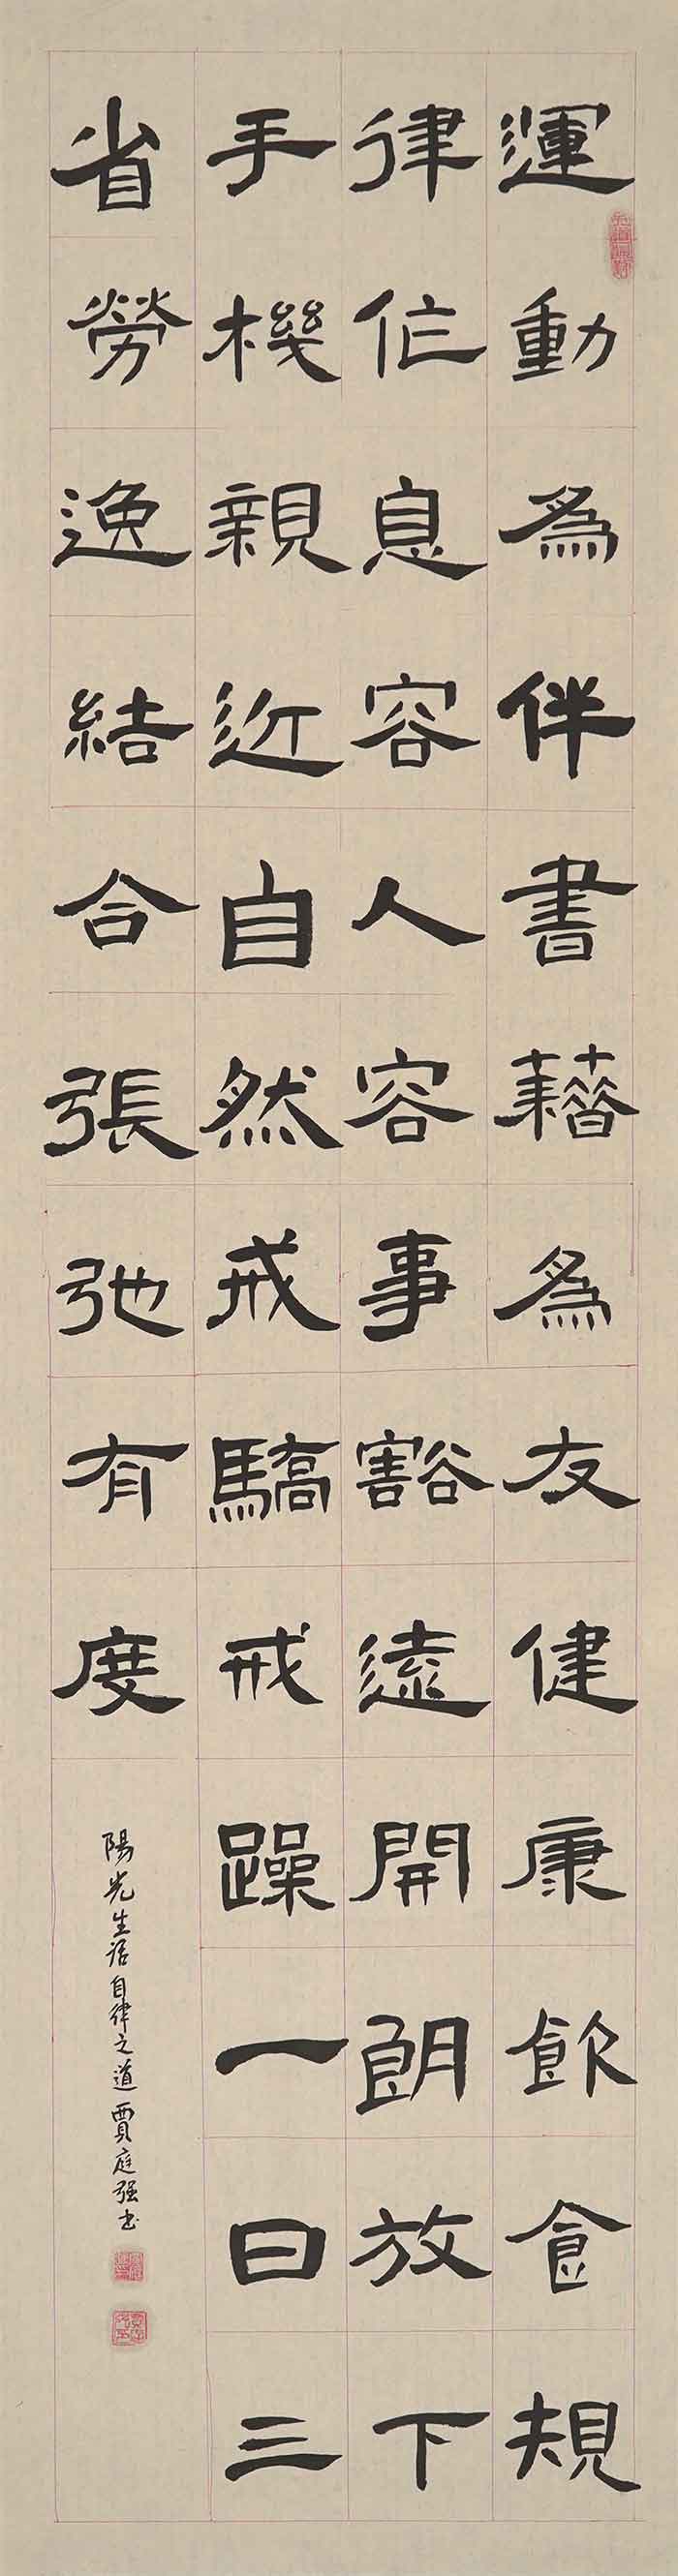 運動為伴書藉為友健康飲食規
律作息容人容事豁達開朗放下
手機親近自然戒驕戒躁一日三
省勞逸結合張弛有度
陽光生活自律之道 賈庭强书